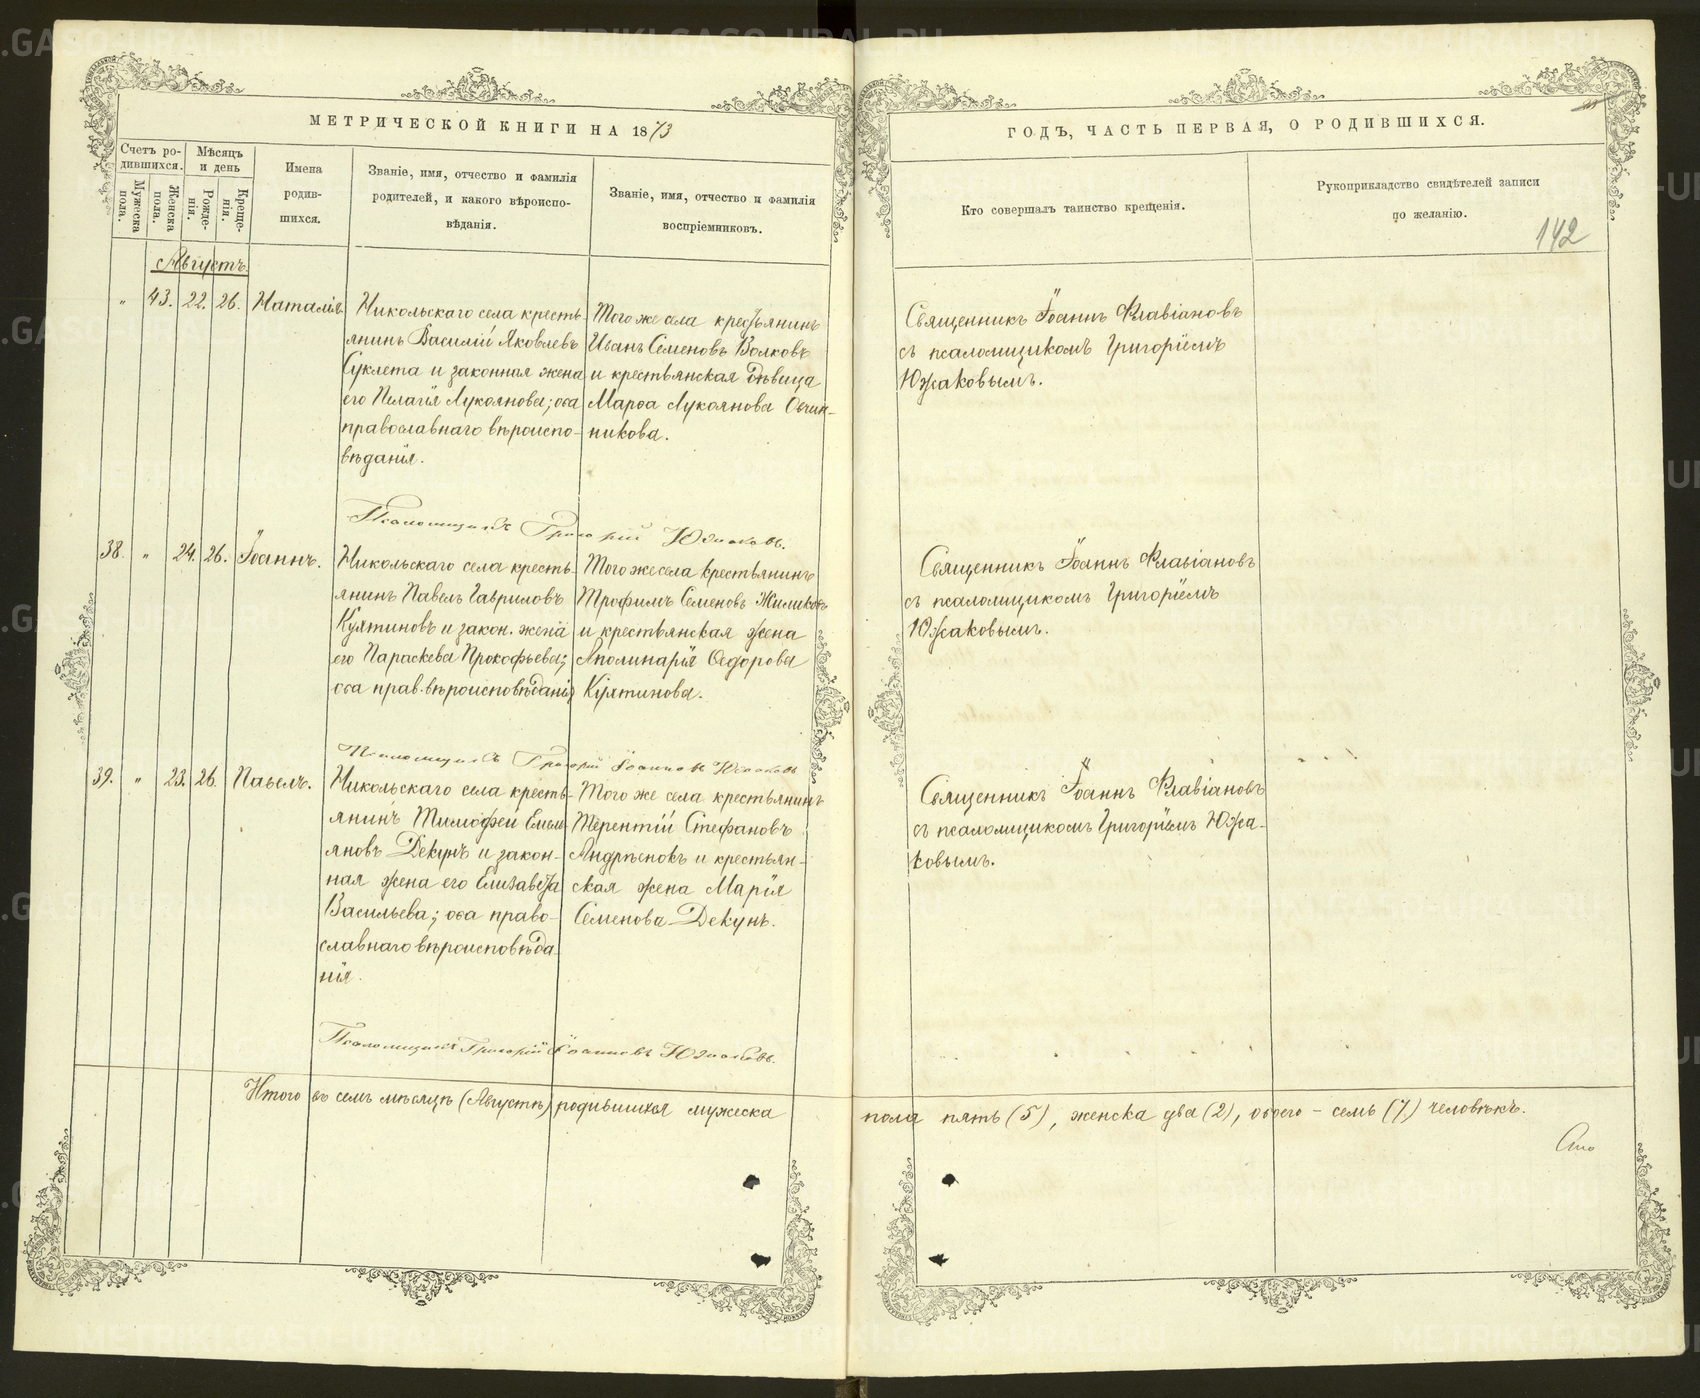 МЕТРИЧЕСКОЙ КНИГИ НА 1873
ГОДЪ, ЧАСТЬ ПЕРВАЯ, О РОДИВШИХСЯ.
Счетъ ро-
дившихся.
Мужеска
пола.
Женска
пола.
Мѣсяцъ
и день
Рожде-
нія.
Креще-
нія.
Имена
родив-
шихся.
Званіе, имя, отчество и фамилія
родителей, и какого вѣроиспо-
вѣданія.
Званіе, имя, отчество и фамилія
воспріемниковъ.
Кто совершалъ таинство крещенія.
Рукоприкладство свидѣтелей записи
по желанію.
142
Августъ.
" 43. 22. 26. Наталія.
Никольскаго села кресть-
янинъ Василій Яковлевъ
Суклета и законная жена
его Пелагія Лукоянова; оба
православнаго вѣроиспо-
вѣданія.
Того же села крестьянинъ
Иванъ Семеновъ Волковъ
и крестьянская дѣвица
Марѳа Лукоянова Овчин-
никова.
Священникъ Іоаннъ Флавіановъ
съ псаломщикомъ Григоріемъ
Южаковымъ.
Псаломщикъ Григорій Южаковъ.
38. " 24. 26. Іоаннъ.
Никольскаго села кресть-
янинъ Павелъ Гавриловъ
Култиновъ и закон. жена
его Параскева Прокофьева;
оба прав. вѣроисповѣданія
Того же села крестьянинъ
Трофимъ Семеновъ Жиликовъ
и крестьянская жена
Аполинарія Ѳедорова
Култинова.
Священникъ Іоаннъ Флавіановъ
съ псаломщикомъ Григоріемъ
Южаковымъ.
Псаломщикъ Григорій Іоанновъ Южаковъ
39. " 23. 26. Павелъ.
Никольскаго села кресть-
янинъ Тимофей Емель-
яновъ Декунъ и закон-
ная жена его Елизавета
Васильева; оба право-
славнаго вѣроисповѣда-
нія.
Того же села крестьянинъ
Терентій Стефановъ
Андрѣенокъ и крестьян-
ская жена Марія
Семенова Декунъ.
Священникъ Іоаннъ Флавіановъ
съ псаломщикомъ Григоріемъ Южа-
ковымъ.
Псаломщикъ Григорій Іоанновъ Южаковъ.
Итого въ семъ мѣсяцѣ (Августѣ) родившихся мужеска
пола пять (5), женска два (2), обоего – семь (7) человѣкъ.